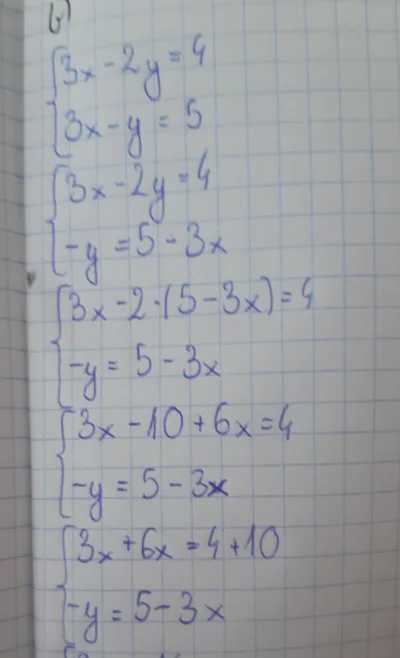 b)
3x - 2y = 4
3x - y = 5
3x - 2y = 4
-y = 5 - 3x
3x - 2·(5 - 3x) = 4
-y = 5 - 3x
3x - 10 + 6x = 4
-y = 5 - 3x
3x + 6x = 4 + 10
-y = 5 - 3x